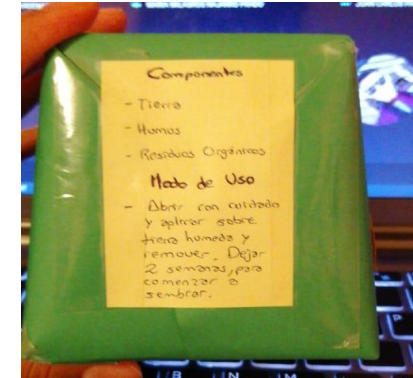 Componentes
- Tierra
- Humus
- Residuos Orgánicos
Modo de Uso
- Abrir con cuidado
y aplicar sobre
tierra humeda y
remover. Dejar
2 semanas, para
comenzar a
sembrar.
B N M